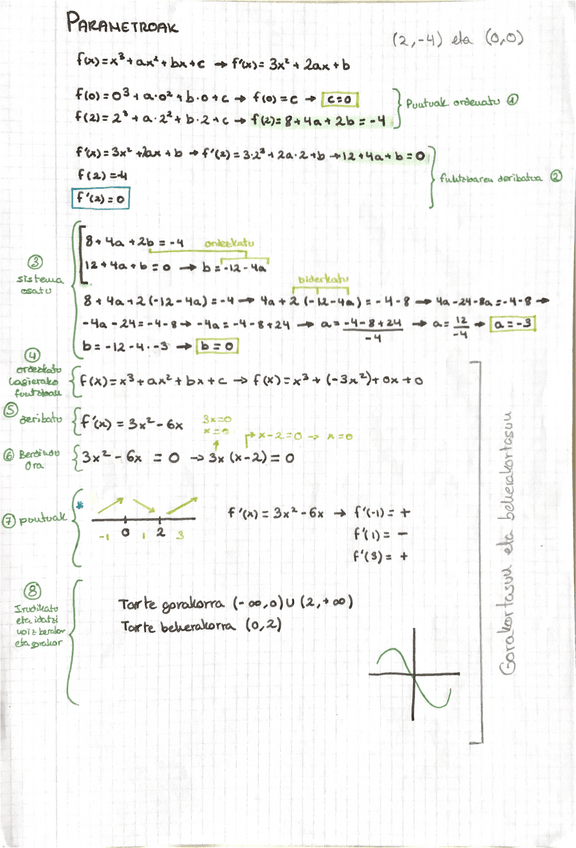 PARAMETROAK
(2,-4) eta (0,0)
f(x)=x³+ax²+bx+c → f'(x)=3x²+2ax+b
f(0)=0³+a·0²+b·0+c → f(0)=c → c=0
f(2)=2³+a·2²+b·2+c → f(2)=8+4a+2b=-4
Puntuak ordenatu ①
f'(x)=3x²+2ax+b → f'(2)=3·2²+2a·2+b → 12+4a+b=0
f(2)=-4
f'(2)=0
funtzioaren deribatua ②
③ sistema osatu
8+4a+2b=-4 ordezkatu
12+4a+b=0 → b=-12-4a
biderkatu
8+4a+2(-12-4a)=-4 → 4a+2(-12-4a)=-4-8 → 4a-24-8a=-4-8 →
-4a-24=-4-8 → -4a=-4-8+24 → a=-4-8+24/-4 → a=12/-4 → a=-3
b=-12-4·-3 → b=0
④ ordezkatu
hasierako
funtzioan
f(x)=x³+ax²+bx+c → f(x)=x³+(-3x²)+0x+0
⑤ deribatu
f'(x)=3x²-6x
3x=0
x=0
x-2=0 → x=0
⑥ Berdindu
0ra
3x²-6x=0 → 3x(x-2)=0
⑦ puntuak
-1 0 1 2 3
f'(x)=3x²-6x → f'(-1)=+
f'(1)=-
f'(3)=+
⑧
Irudikatu
eta idatzi
eta gorakor
Tarte gorakorra (-∞,0)∪(2,+∞)
Tarte beherakorra (0,2)
Gorakortasun eta beherakortasun